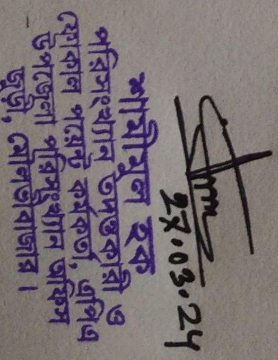 27.03.24
শামীমুল হক
পরিসংখ্যান তদন্তকারী ও
ফোকাল পয়েন্ট কর্মকর্তা, এপিএ
উপজেলা পরিসংখ্যান অফিস
জুড়ী, মৌলভীবাজার।